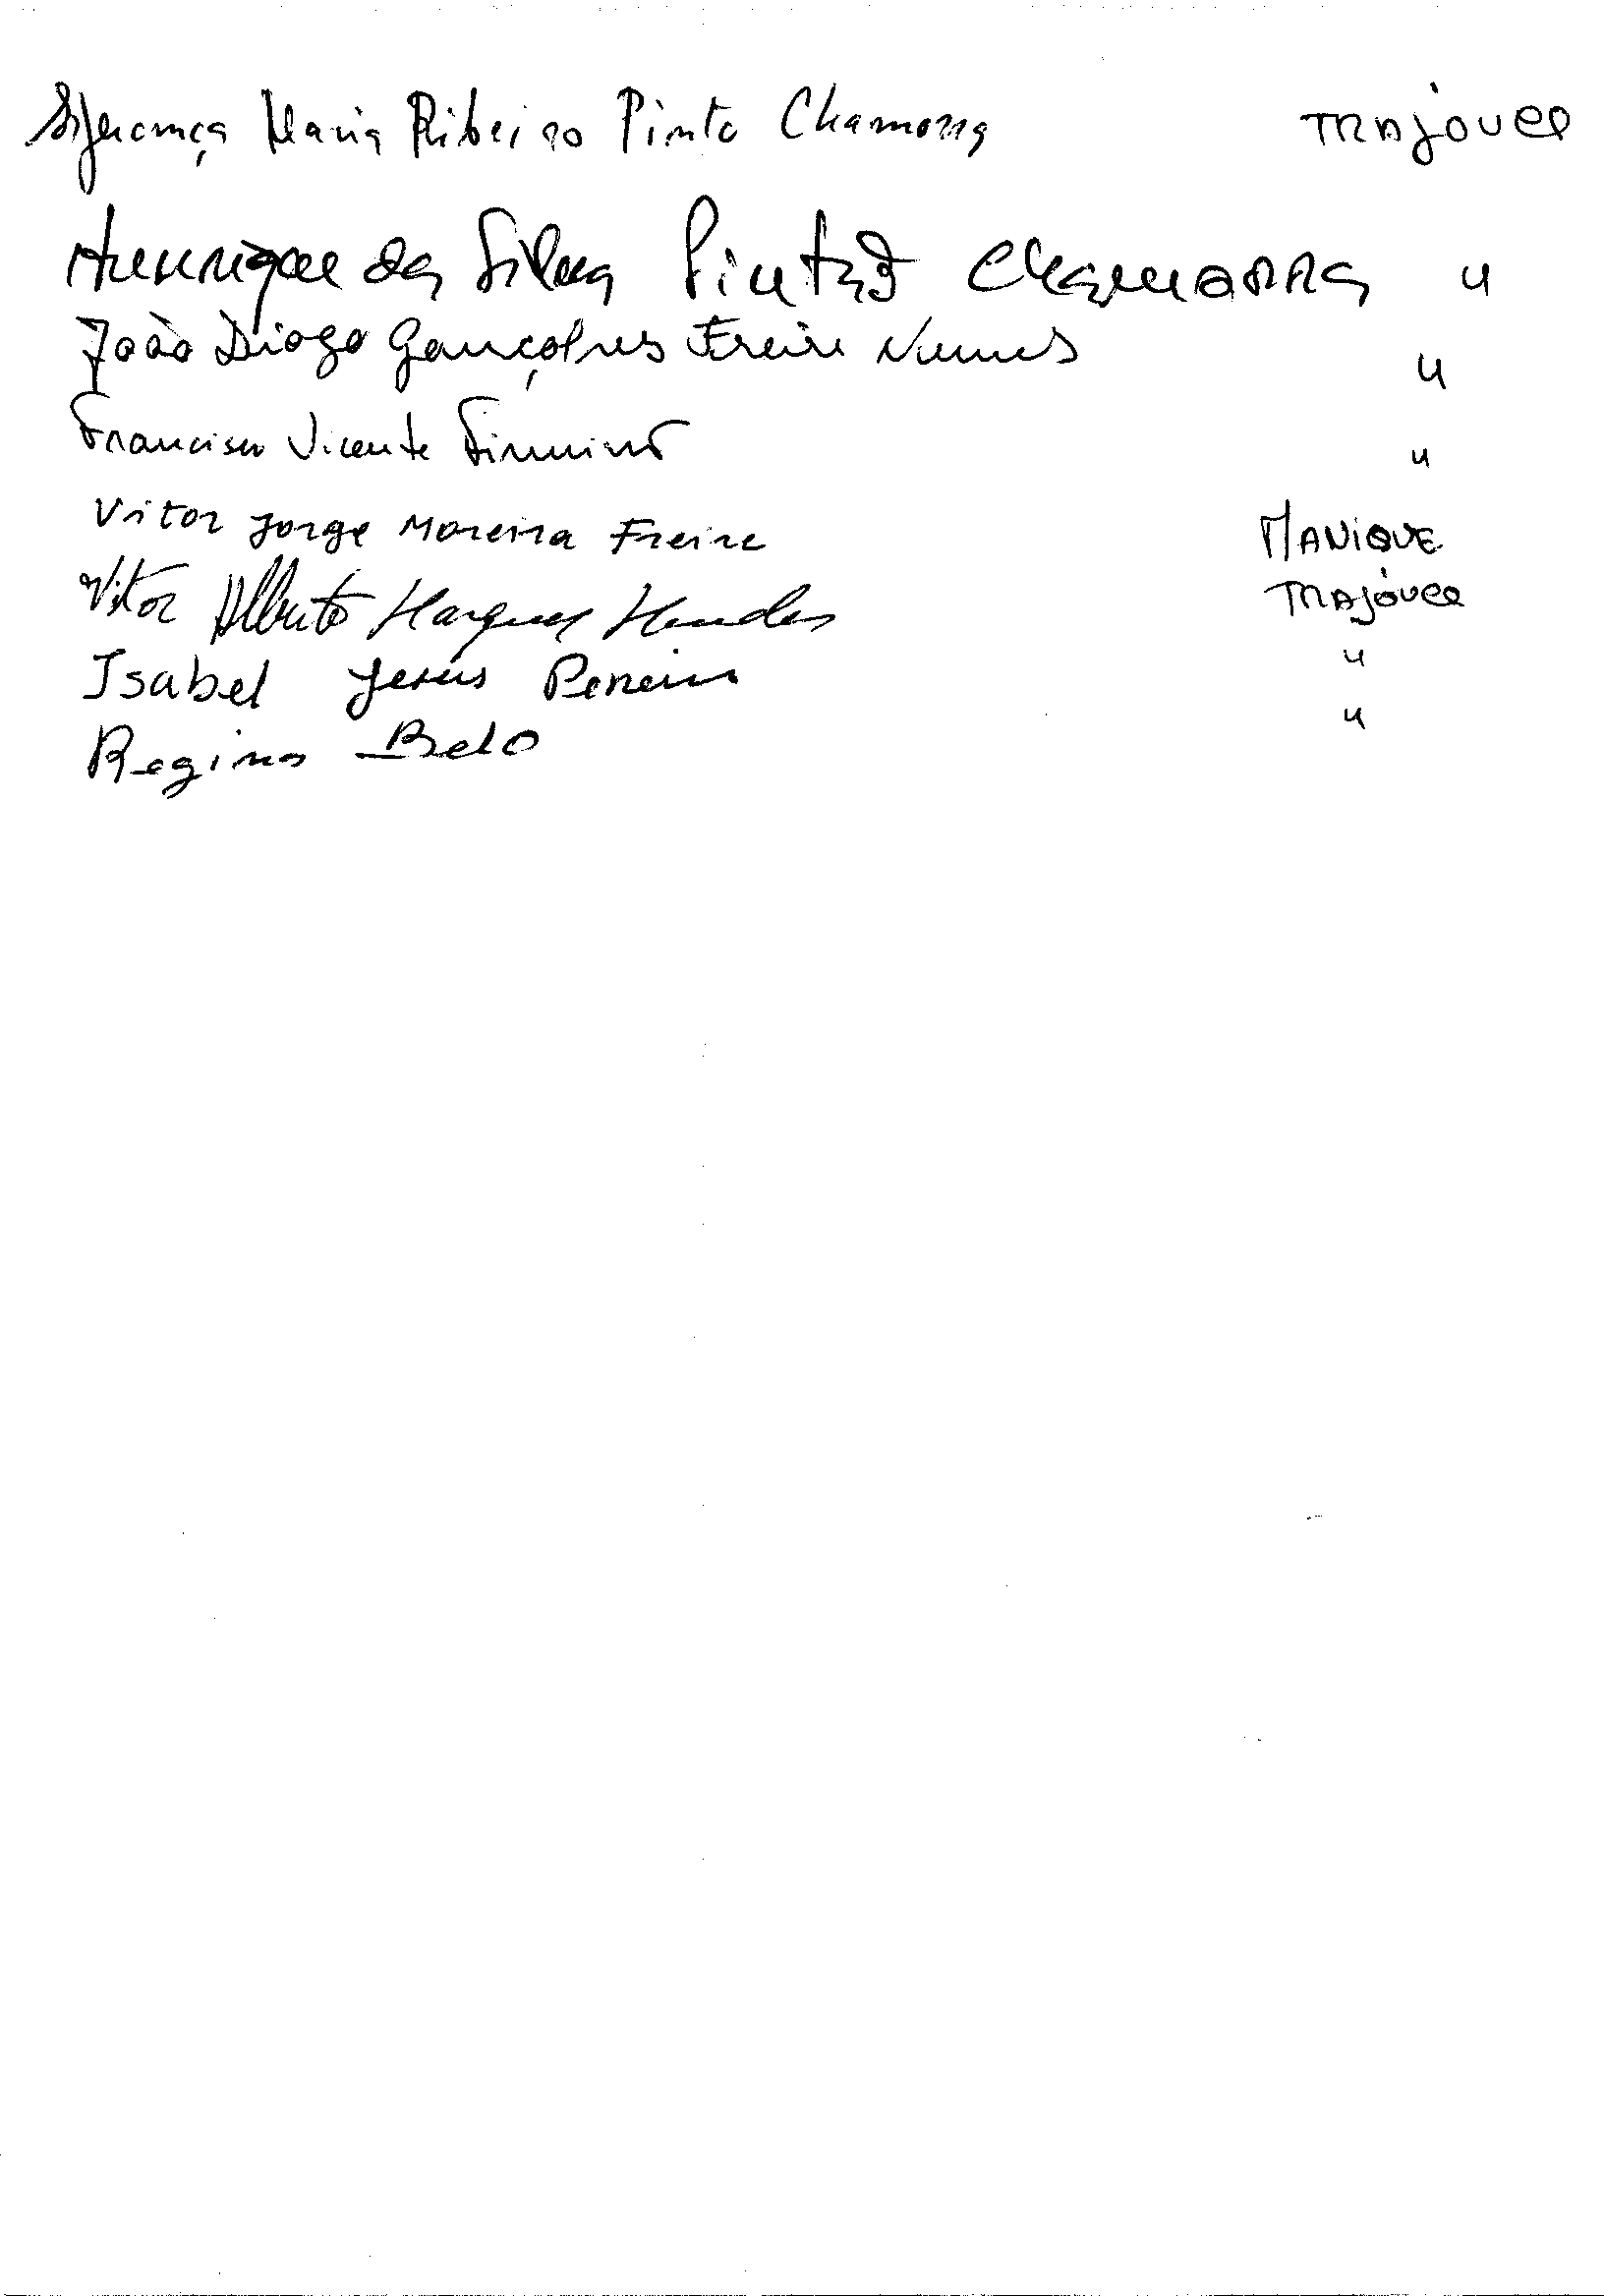 Esperança Maria Ribeiro Pinto Chamorra TRAJOUCE
Henrique da Silva Pintão Chamorra "
João Diogo Gonçalves Freire Nunes "
Francisco Vicente Firmino "
Vitor Jorge Moreira Freire MANIQUE
Vitor Alberto Marques Mendes TRAJOUCE
Isabel Jesus Pereira "
Regina Belo "